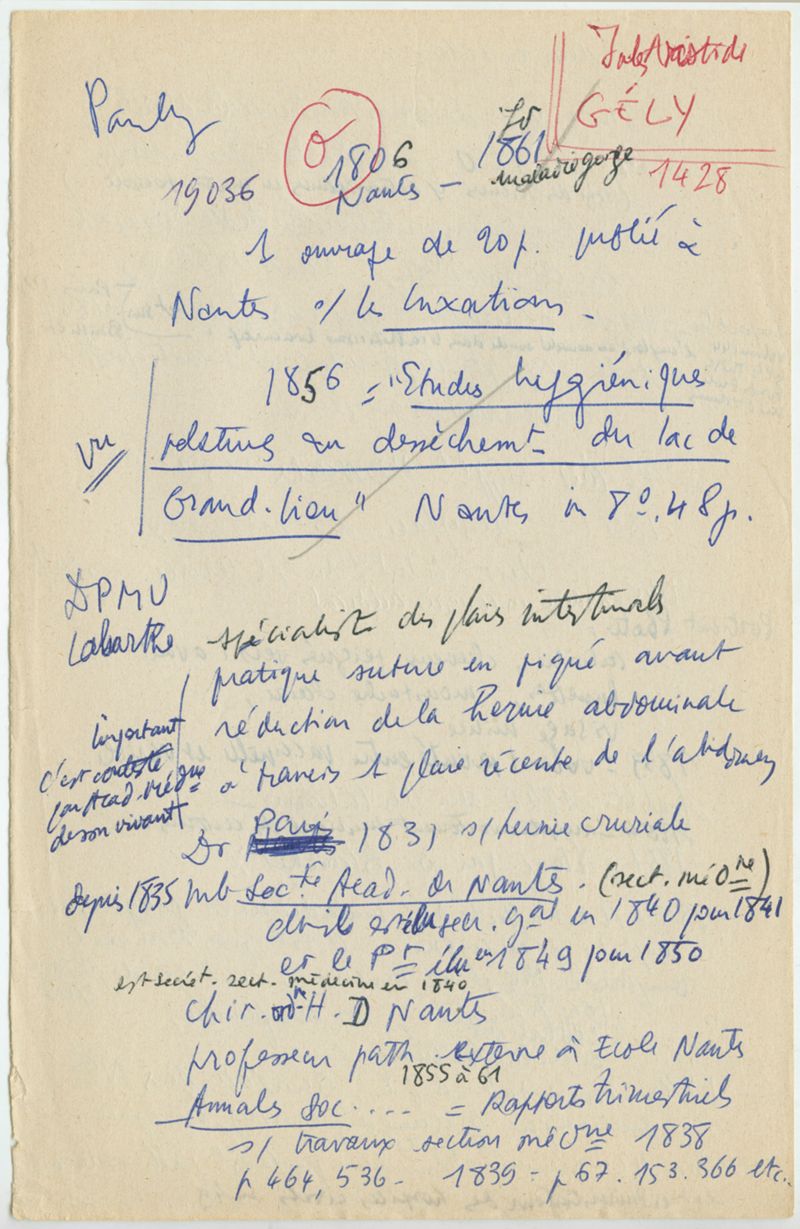 Jules Aristide
GÉLY
1428
Pauly
19036
O
1806
Nantes -
Id
1861
maladie gorge
1 ouvrage de 20 p. publié à
Nantes s/ les luxations.
vu
1856 = "Etudes hygiéniques
relatives au dessèchemt du lac de
Grand-Lieu" Nantes in 8º, 48 p.
DPMV
Labarthe
spécialiste des plaies intestinales
pratique suture en piqué avant
réduction de la hernie abdominale
à travers 1 plaie récente de l'abdomen
important
c'est contesté
par Acad. méd. que
de son vivant
Dr Paris 1831 s/ hernie crurale
depuis 1835 mb Socté Acad. de Nantes. (sect. médne)
dont il est élu secr. gal en 1840 pour 1841
et le Pt élu en 1849 pour 1850
est secrét. sect. médecine en 1840
chir. H. D Nantes
professeur path. externe à Ecole Nantes
1855 à 61
Annales Soc .... = Rapports trimestriels
s/ travaux section médne 1838
p 464, 536 - 1839 = p 67. 153. 366 etc..